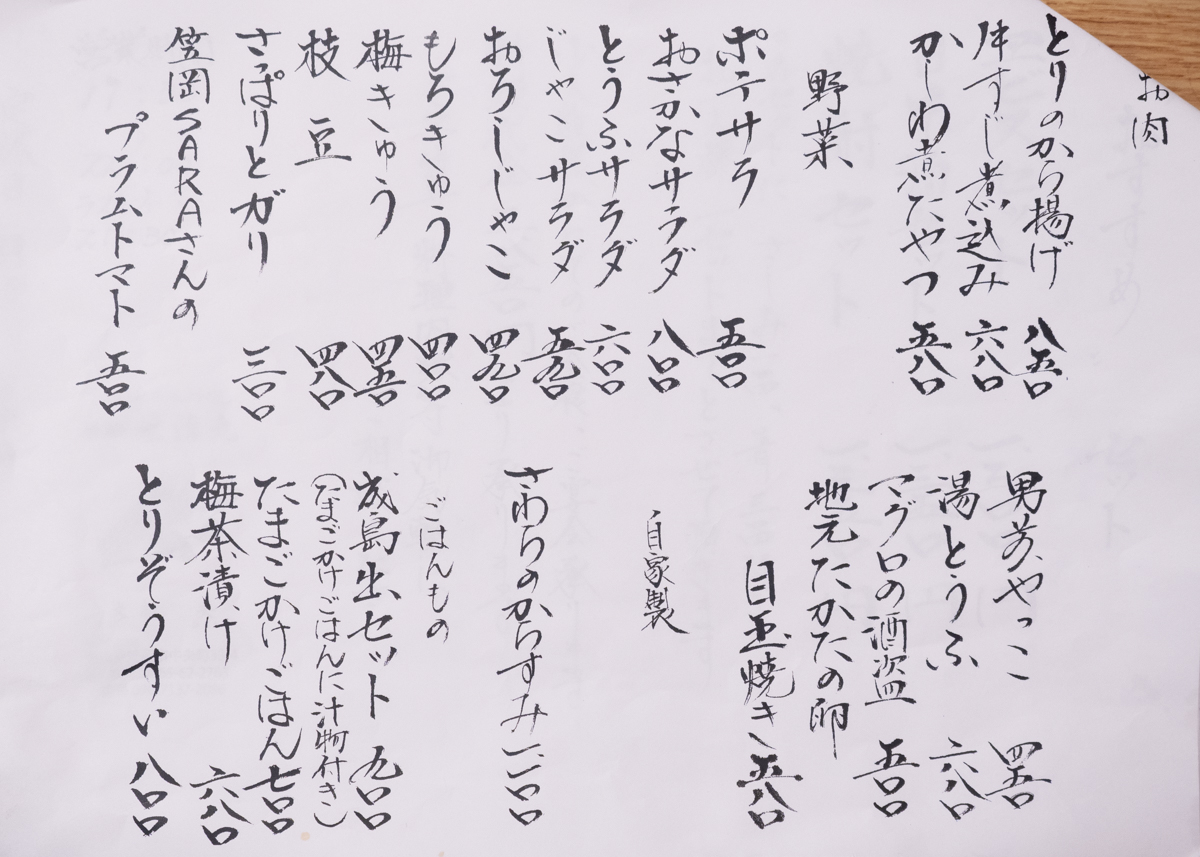 お肉
とりのから揚げ 八五〇
牛すじ煮込み 六八〇
かしわ煮たやつ 五八〇
野菜
ポテサラ 五〇〇
おさかなサラダ 八〇〇
とうふサラダ 六〇〇
じゃこサラダ 五九〇
おろしじゃこ 四九〇
もろきゅう 四〇〇
梅きゅう 四五〇
枝豆 四八〇
さっぱりとガリ 三〇〇
笠岡SARAさんの
プラムトマト 五〇〇
男前やっこ 四五〇
湯とうふ 六八〇
マグロの酒盗 五〇〇
地元たかたの卵
目玉焼き 五八〇
自家製
さわらのからすみ
ごはんもの
成島出セット 九〇〇
(たまごかけごはんに汁物付き)
たまごかけごはん 七〇〇
梅茶漬け 六八〇
とりぞうすい 八〇〇